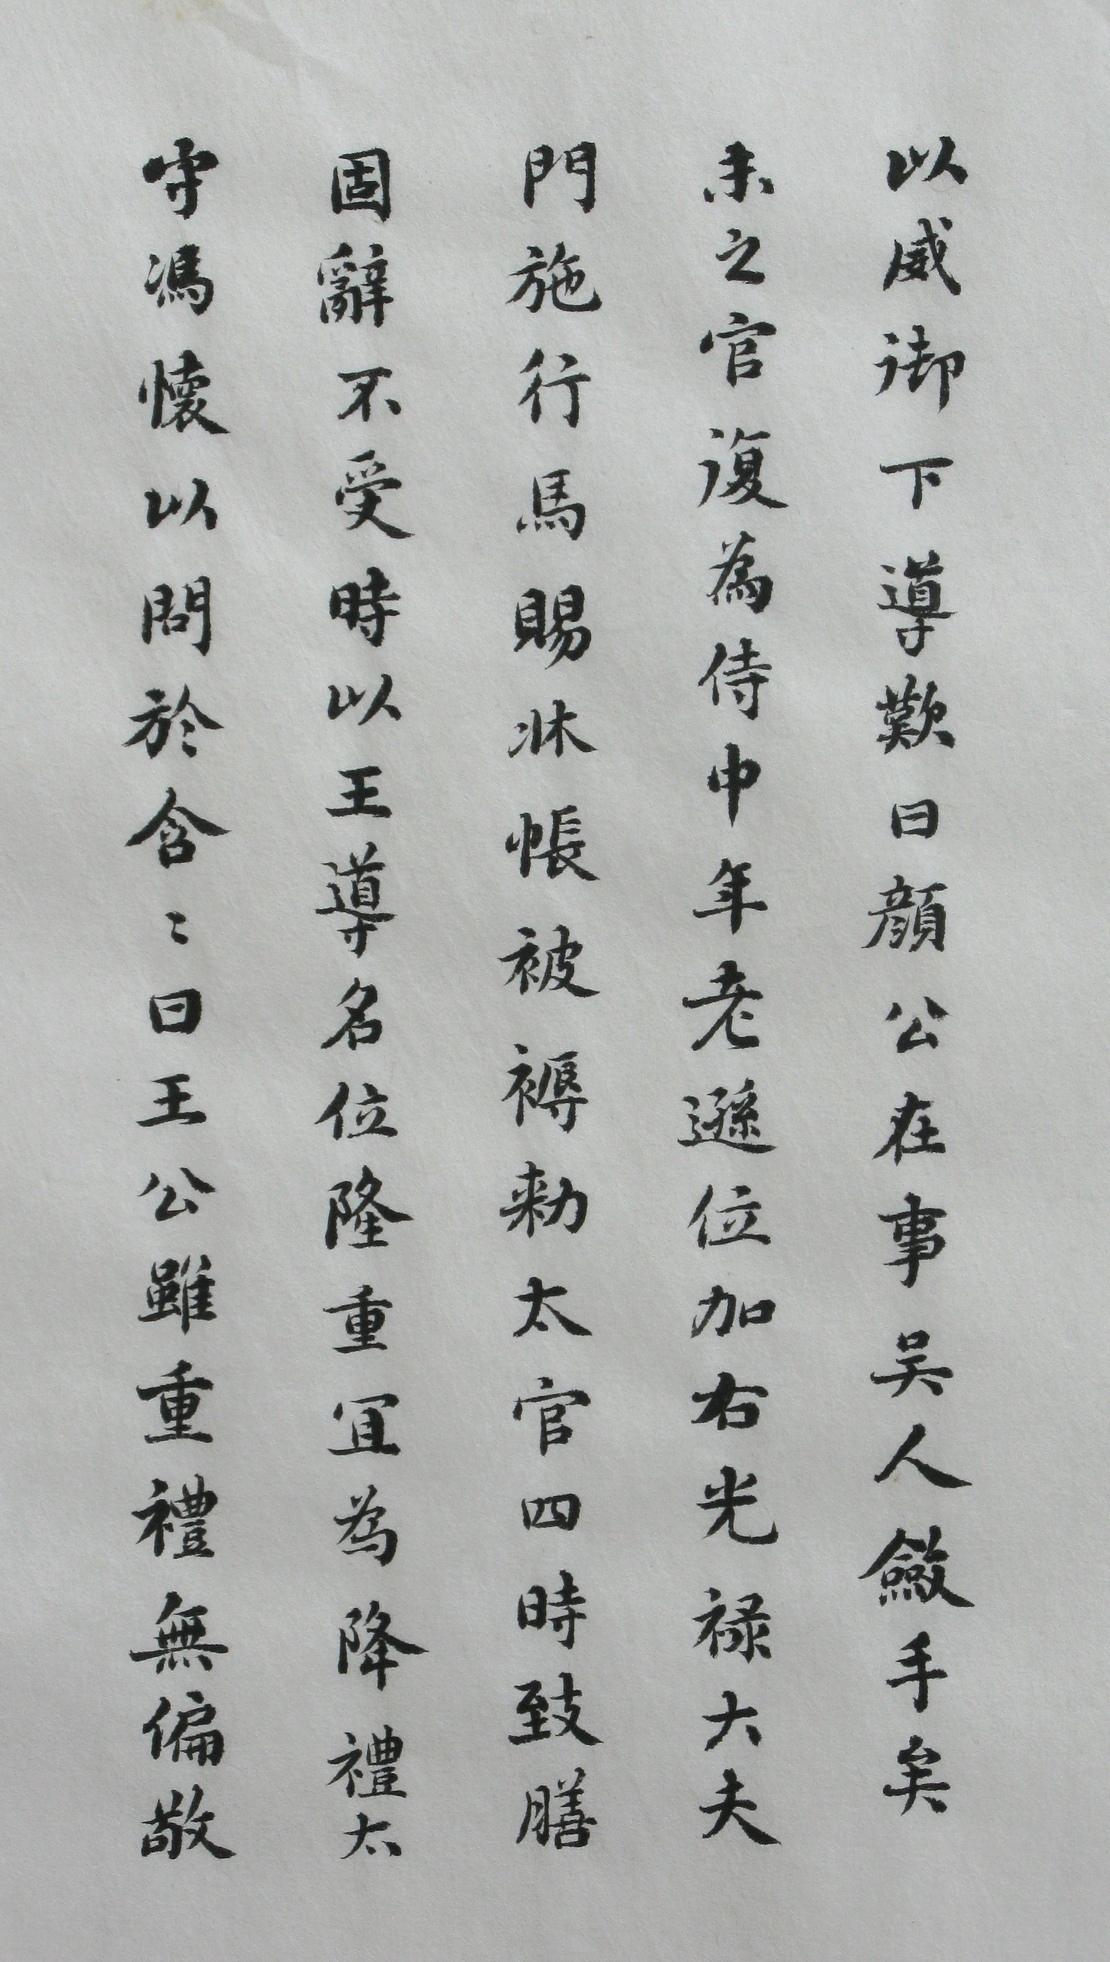 以威御下導歎曰顔公在事吴人斂手矣
未之官復為侍中年老遜位加右光禄大夫
門施行馬賜牀帳被褥勑太官四時致膳
固辭不受時以王導名位隆重宜為降禮太
守馮懷以問於含〻曰王公雖重禮無偏敬